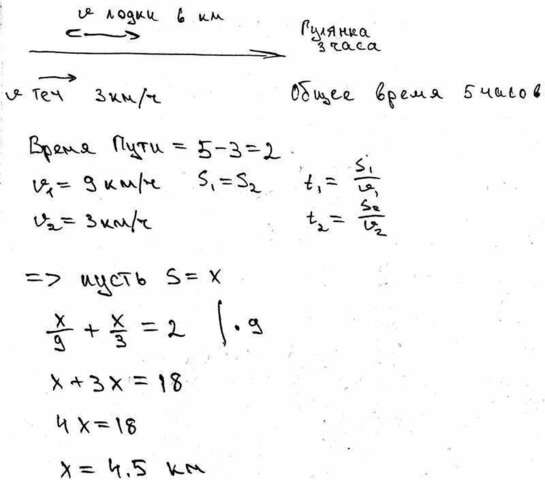 v лодки 6 км
Гулянка
3 часа
v теч 3 км/ч
Общее время 5 часов
Время Пути = 5-3=2
v₁= 9 км/ч S₁=S₂ t₁= S₁/v₁
v₂= 3 км/ч t₂= S₂/v₂
=> пусть S=x
x/9 + x/3 = 2 | · 9
x+3x=18
4x=18
x=4.5 км